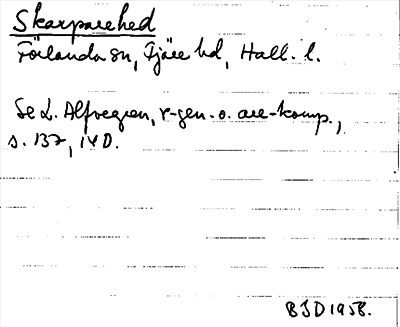 Skarparehed
Förlanda sn, Fjäre hd, Hall. l.
Se L. Alfvegren, r-gen. o. are-komp.,
s. 137, 140.
BSD 1958.